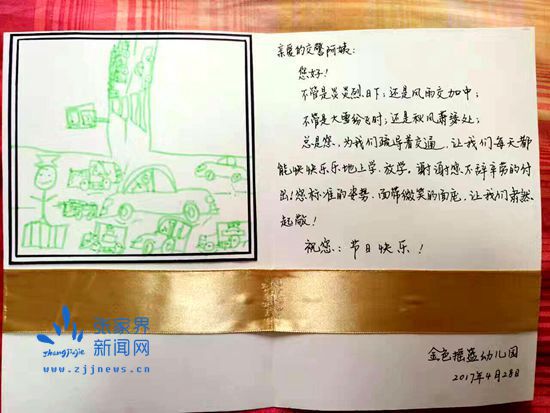 亲爱的交警阿姨：
您好！
不管是炎炎烈日下；还是风雨交加中；
不管是大雪纷飞时；还是秋风萧瑟处；
总是您，为我们疏导着交通，让我们每天都
能快快乐乐地上学、放学，谢谢您不辞辛劳的付
出！您标准的姿势、面带微笑的面庞，让我们肃然
起敬！
祝您：节日快乐！
金色摇篮幼儿园
2017年4月28日
张家界
zhangjiajie
新闻网
www.zjjnews.cn